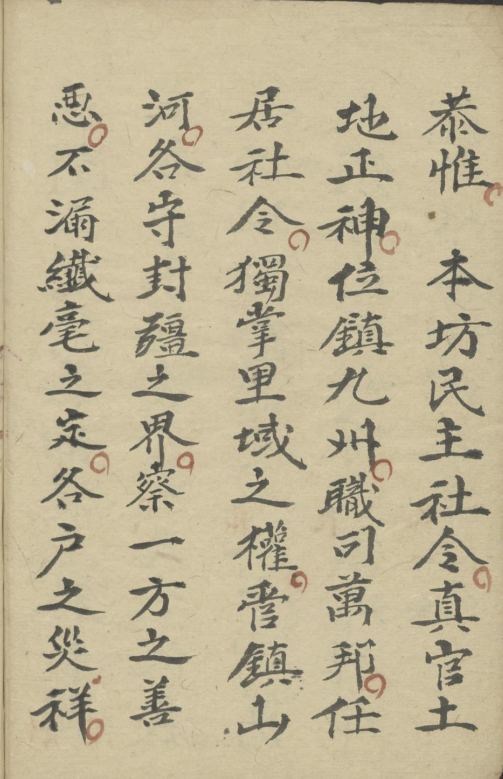 恭惟　本坊民主社令真官土
地正神位鎮九州職司萬邦任
居社令獨掌里域之權管鎮山
河各守封疆之界察一方之善
惡不漏纖毫之定各户之災祥